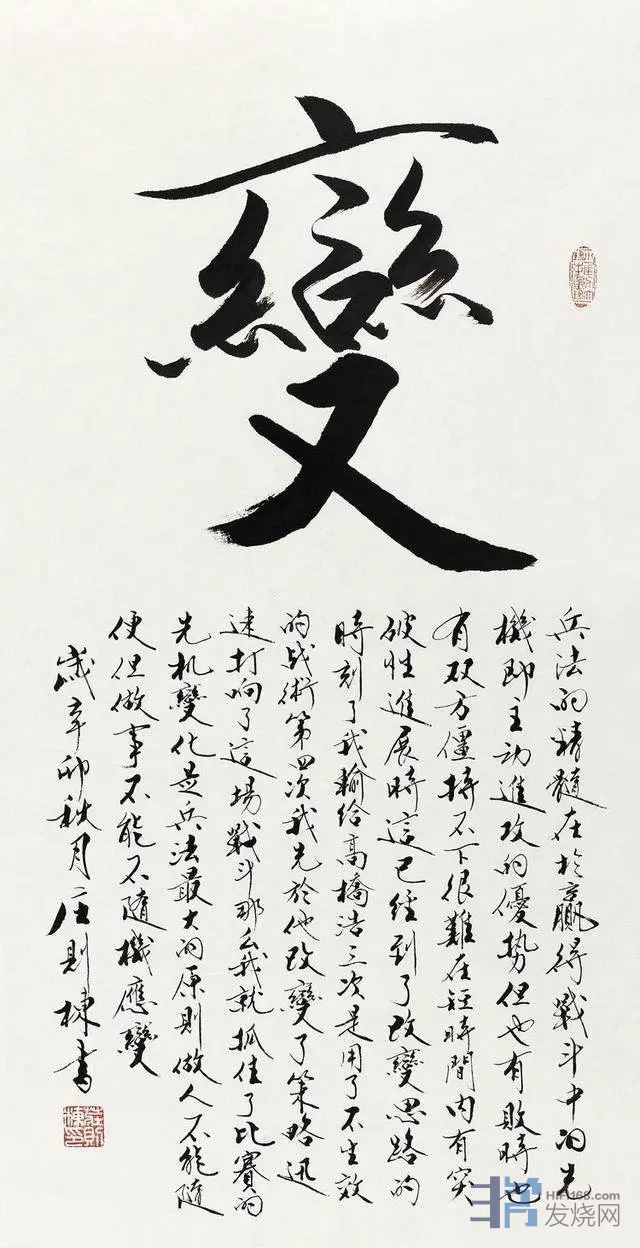 變
兵法的精髓在於贏得戰斗中的先
機即主动進攻的優势但也有敗時也
有双方僵持不下很難在短時間内有突
破性進展時這已經到了改變思路的
時刻了我輸給高橋浩三次是用了不生效
的战術第四次我先於他改變了策略迅
速打响了這場戰斗那么我就抓住了比賽的
先机變化是兵法最大的原則做人不能隨
便但做事不能不隨機應變
歲辛卯秋月庄則棟書
HIFI168.com
发烧网